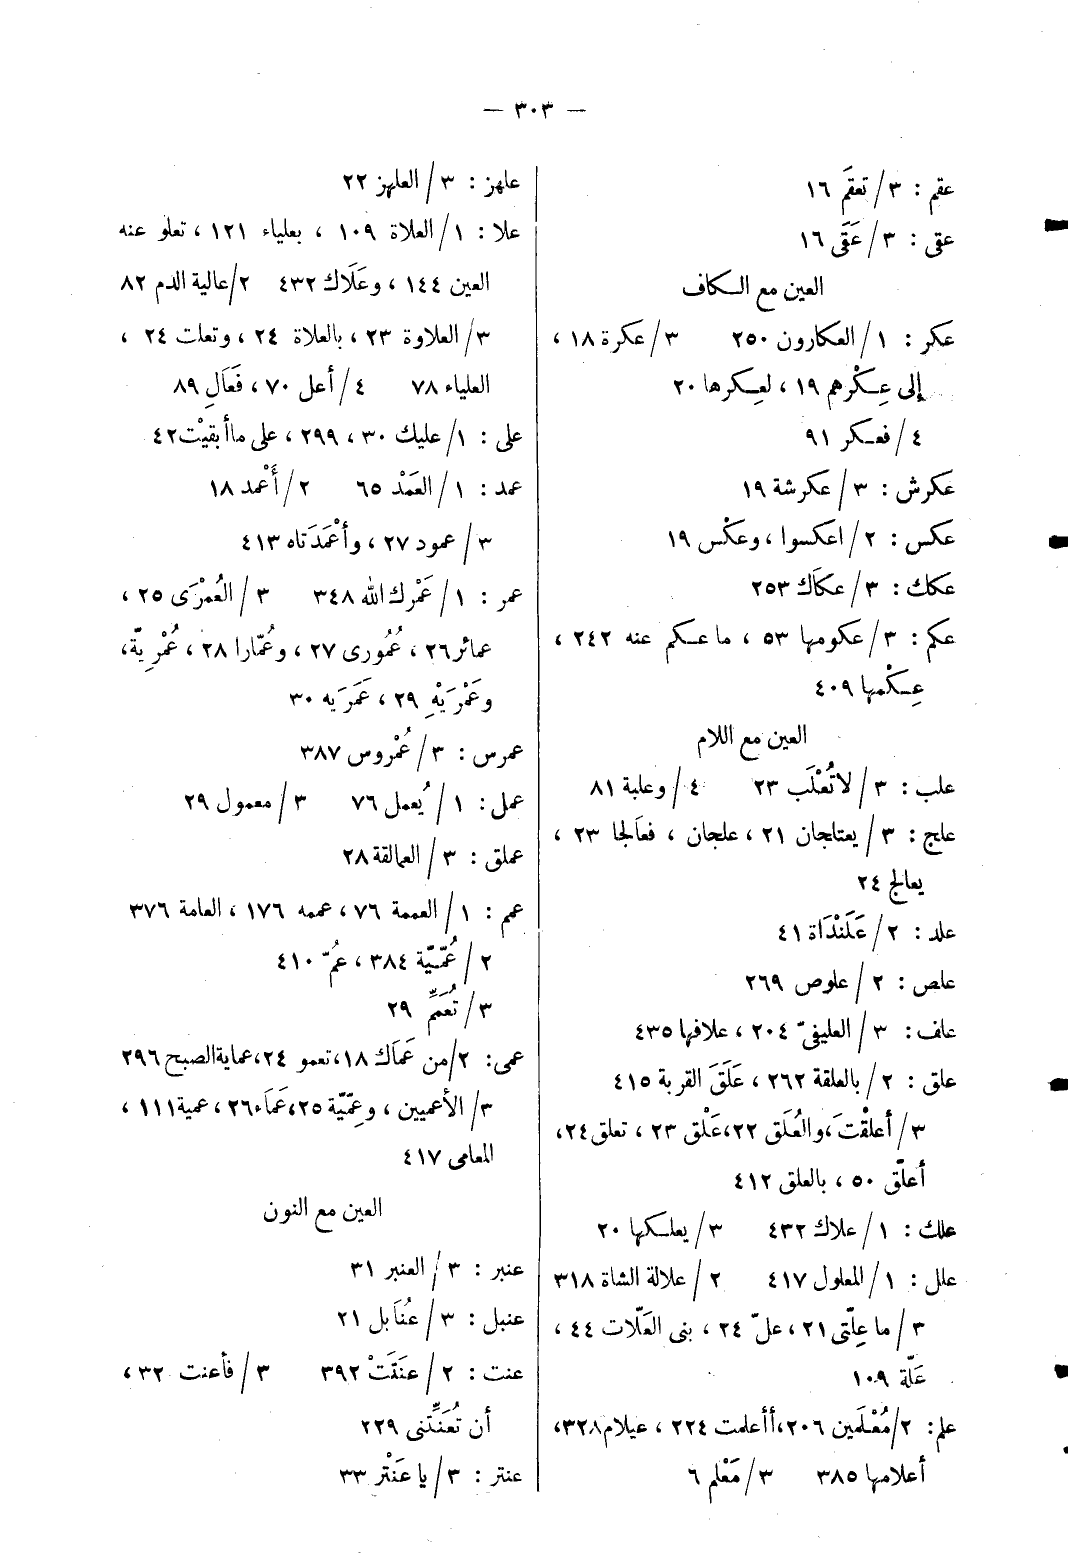 — ٣٠٣ —
عقم : ٣/ تعقَم ١٦
عقى : ٣/ عَقَى ١٦
العين مع الكاف
عكر : ١/ العكارون ٢٥٠ ٣/ عكرة ١٨ ،
إلى عِكْرهم ١٩ ، لعِكرها ٢٠
٤/ فعكر ٩١
عكرش : ٣/ عكرشة ١٩
عكس : ٢/ اعكسوا ، وعكْس ١٩
عكك : ٣/ عكاَك ٢٥٣
عكم : ٣/ عكومها ٥٣ ، ما عكم عنه ٢٤٢ ،
عِكْمها ٤٠٩
العين مع اللام
علب : ٣/ لا تُعْلَب ٢٣ ٤/ وعلبة ٨١
علج : ٣/ يعتلجان ٢١ ، علجان ، فعاَلجا ٢٣ ،
يعالج ٢٤
علد : ٢/ عَلَنْدَاة ٤١
علص : ٢/ علوص ٢٦٩
علف : ٣/ العليفىّ ٢٠٤ ، علافها ٤٣٥
علق : ٢/ بالعلقة ٢٦٢ ، عَلَقَ القربة ٤١٥
٣/ أعلقْتَ ، والعُلَق ٢٢ ، عَلْق ٢٣ ، تعلق ٢٤ ،
أعلّق ٥٠ ، بالعلق ٤١٢
علك : ١/ علاك ٤٣٢ ٣/ يعلكها ٢٠
علل : ١/ المعلول ٤١٧ ٢/ علالة الشاة ٣١٨
٣/ ما عِلّتى ٢١ ، علّ ٢٤ ، بنى العَلّات ٤٤ ،
عَلّة ١٠٩
علم : ٢/ مُعْلَمين ٢٠٦ ، أأعلمت ٢٢٤ ، عيلام ٣٢٨ ،
أعلامها ٣٨٥ ٣/ مَعْلم ٦
علهز : ٣/ العلهز ٢٢
علا : ١/ العلاة ١٠٩ ، بعلياء ١٢١ ، تعلو عنه
العين ١٤٤ ، وعَلَاك ٤٣٢ ٢/ عالية الدم ٨٢
٣/ العلاوة ٢٣ ، بالعلاة ٢٤ ، وتعلت ٢٤ ،
العلياء ٧٨ ٤/ أعل ٧٠ ، فَعَالِ ٨٩
على : ١/ عليك ٣٠ ، ٢٩٩ ، على ما أبقيْت ٤٢
عمد : ١/ العَمَدْ ٦٥ ٢/ أَعْمد ١٨
٣/ عمود ٢٧ ، وأعْمَدَتاه ٤١٣
عمر : ١/ عَمْرك الله ٣٤٨ ٣/ العُمْرَى ٢٥ ،
عمائر ٢٦ ، عُمُورى ٢٧ ، وعُمّارا ٢٨ ، عُمْرِيّة ،
وعَمْرَيْهِ ٢٩ ، عَمَرَيه ٣٠
عمرس : ٣/ عُمْروس ٣٨٧
عمل : ١/ يُعمل ٧٦ ٣/ معمول ٢٩
عملق : ٣/ العمالقة ٢٨
عمم : ١/ العممة ٧٦ ، عممه ١٧٦ ، العامة ٣٧٦
٢/ عُمّيّة ٣٨٤ ، عُمّ ٤١٠
٣/ تُعَمِّم ٢٩
عمى : ٢/ من عَمَاك ١٨ ، تعمو ٢٤ ، عماية الصبح ٢٩٦
٣/ الأعميين ، وعِمّيّة ٢٥ ، عَمَاء ٢٦ ، عمية ١١١ ،
المعامى ٤١٧
العين مع النون
عنبر : ٣/ العنبر ٣١
عنبل : ٣/ عُنَابل ٢١
عنت : ٢/ عنَتَتْ ٣٩٢ ٣/ فأعنت ٣٢ ،
أن تُعَنِّتنى ٢٢٩
عنتر : ٣/ يا عَنْتر ٣٣